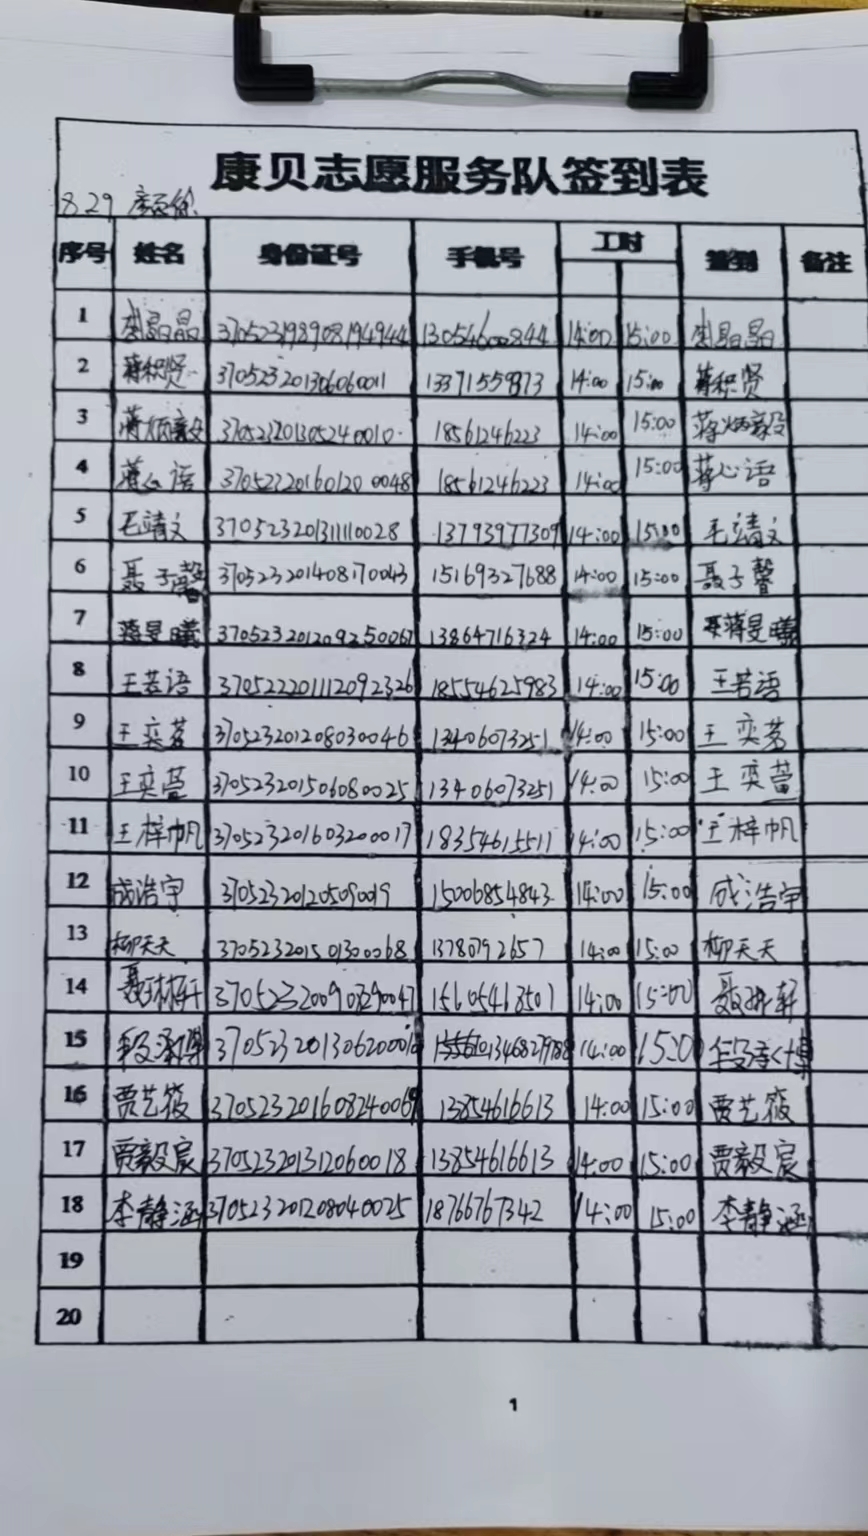 康贝志愿服务队签到表
8.29
序号 姓名 身份证号 手机号 工时 签到 备注
1 李晶晶 370523198908194944 13054600844 14:00 15:00 李晶晶
2 蒋积贤 370523201306060011 13371559873 14:00 15:00 蒋积贤
3 蒋炳毅 370523201305240010 18561246223 14:00 15:00 蒋炳毅
4 蒋心语 370523201601200048 18561246223 14:00 15:00 蒋心语
5 毛靖文 370523201311110028 13793977309 14:00 15:00 毛靖文
6 聂子馨 370523201408170043 15169327688 14:00 15:00 聂子馨
7 蒋旻曦 370523201209250067 13864716324 14:00 15:00 蒋旻曦
8 王若语 370522201112092326 18554625983 14:00 15:00 王若语
9 王奕茗 370523201208030046 13406073251 14:00 15:00 王奕茗
10 王奕萱 370523201506080025 13406073251 14:00 15:00 王奕萱
11 王梓帆 370523201603200017 18354615511 14:00 15:00 王梓帆
12 成浩宇 370523201205090019 15006854843 14:00 15:00 成浩宇
13 柳天天 370523201501300068 1378092657 14:00 15:00 柳天天
14 370523200907290047 15605468501 14:00 15:00
15 13468279788 14:00 15:00
16 贾艺筱 370523201608240069 13854616613 14:00 15:00 贾艺筱
17 贾毅宸 370523201312060018 13854616613 14:00 15:00 贾毅宸
18 李静涵 370523201208040025 18766767342 14:00 15:00 李静涵
19
20
1